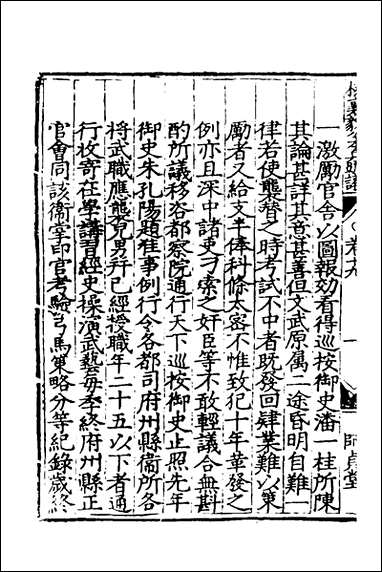 卷十九
一
師貞堂
一激勵官舍以圖報効看得巡按御史潘一桂所陳
其論甚詳其意甚善但文武原属二途昏明自難一
律若使襲替之時考試不中者既發回肄業難以策
勵者又給支半俸科條太密不惟致犯十年革發之
例亦且深中諸吏刁索之奸臣等不敢輕議合無斟
酌所議移咨都察院通行天下巡按御史止照先年
御史朱孔陽題准事例行令各都司府州縣衞所各
將武職應襲兒男幷已經授職年二十五以下者通
行收寄在學講習經史操演武藝每季終府州縣正
官會同該衞掌印官考騐弓馬策略分等紀錄歲終